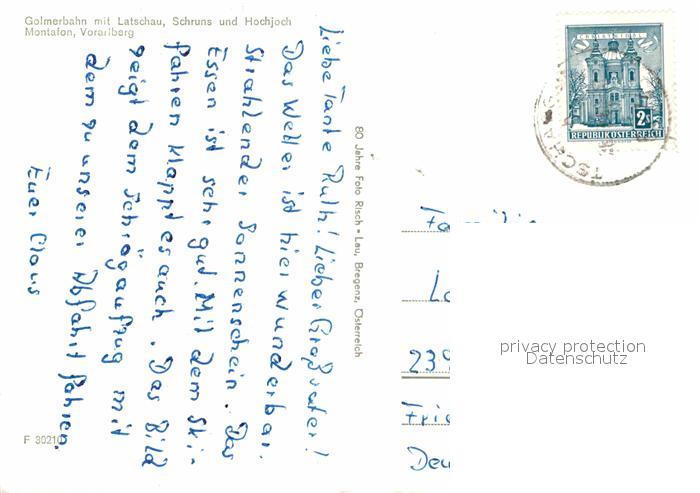 Golmerbahn mit Latschau, Schruns und Hochjoch
Montafon, Vorarlberg
Liebe Tante Ruth! Lieber Großvater!
Das Wetter ist hier wunderbar.
Strahlender Sonnenschein. Das
Essen ist sehr gut. Mit dem Ski-
fahren klappt es auch. Das Bild
zeigt dem Schrägaufzug mit
dem zu unserer Abfahrt fahren.
Euer Claus
F 30210
80 Jahre Foto Risch-Lau, Bregenz, Österreich
CHRISTKINDL
2s
REPUBLIK ÖSTERREICH
TSCHA
239
Deu
privacy protection
Datenschutz